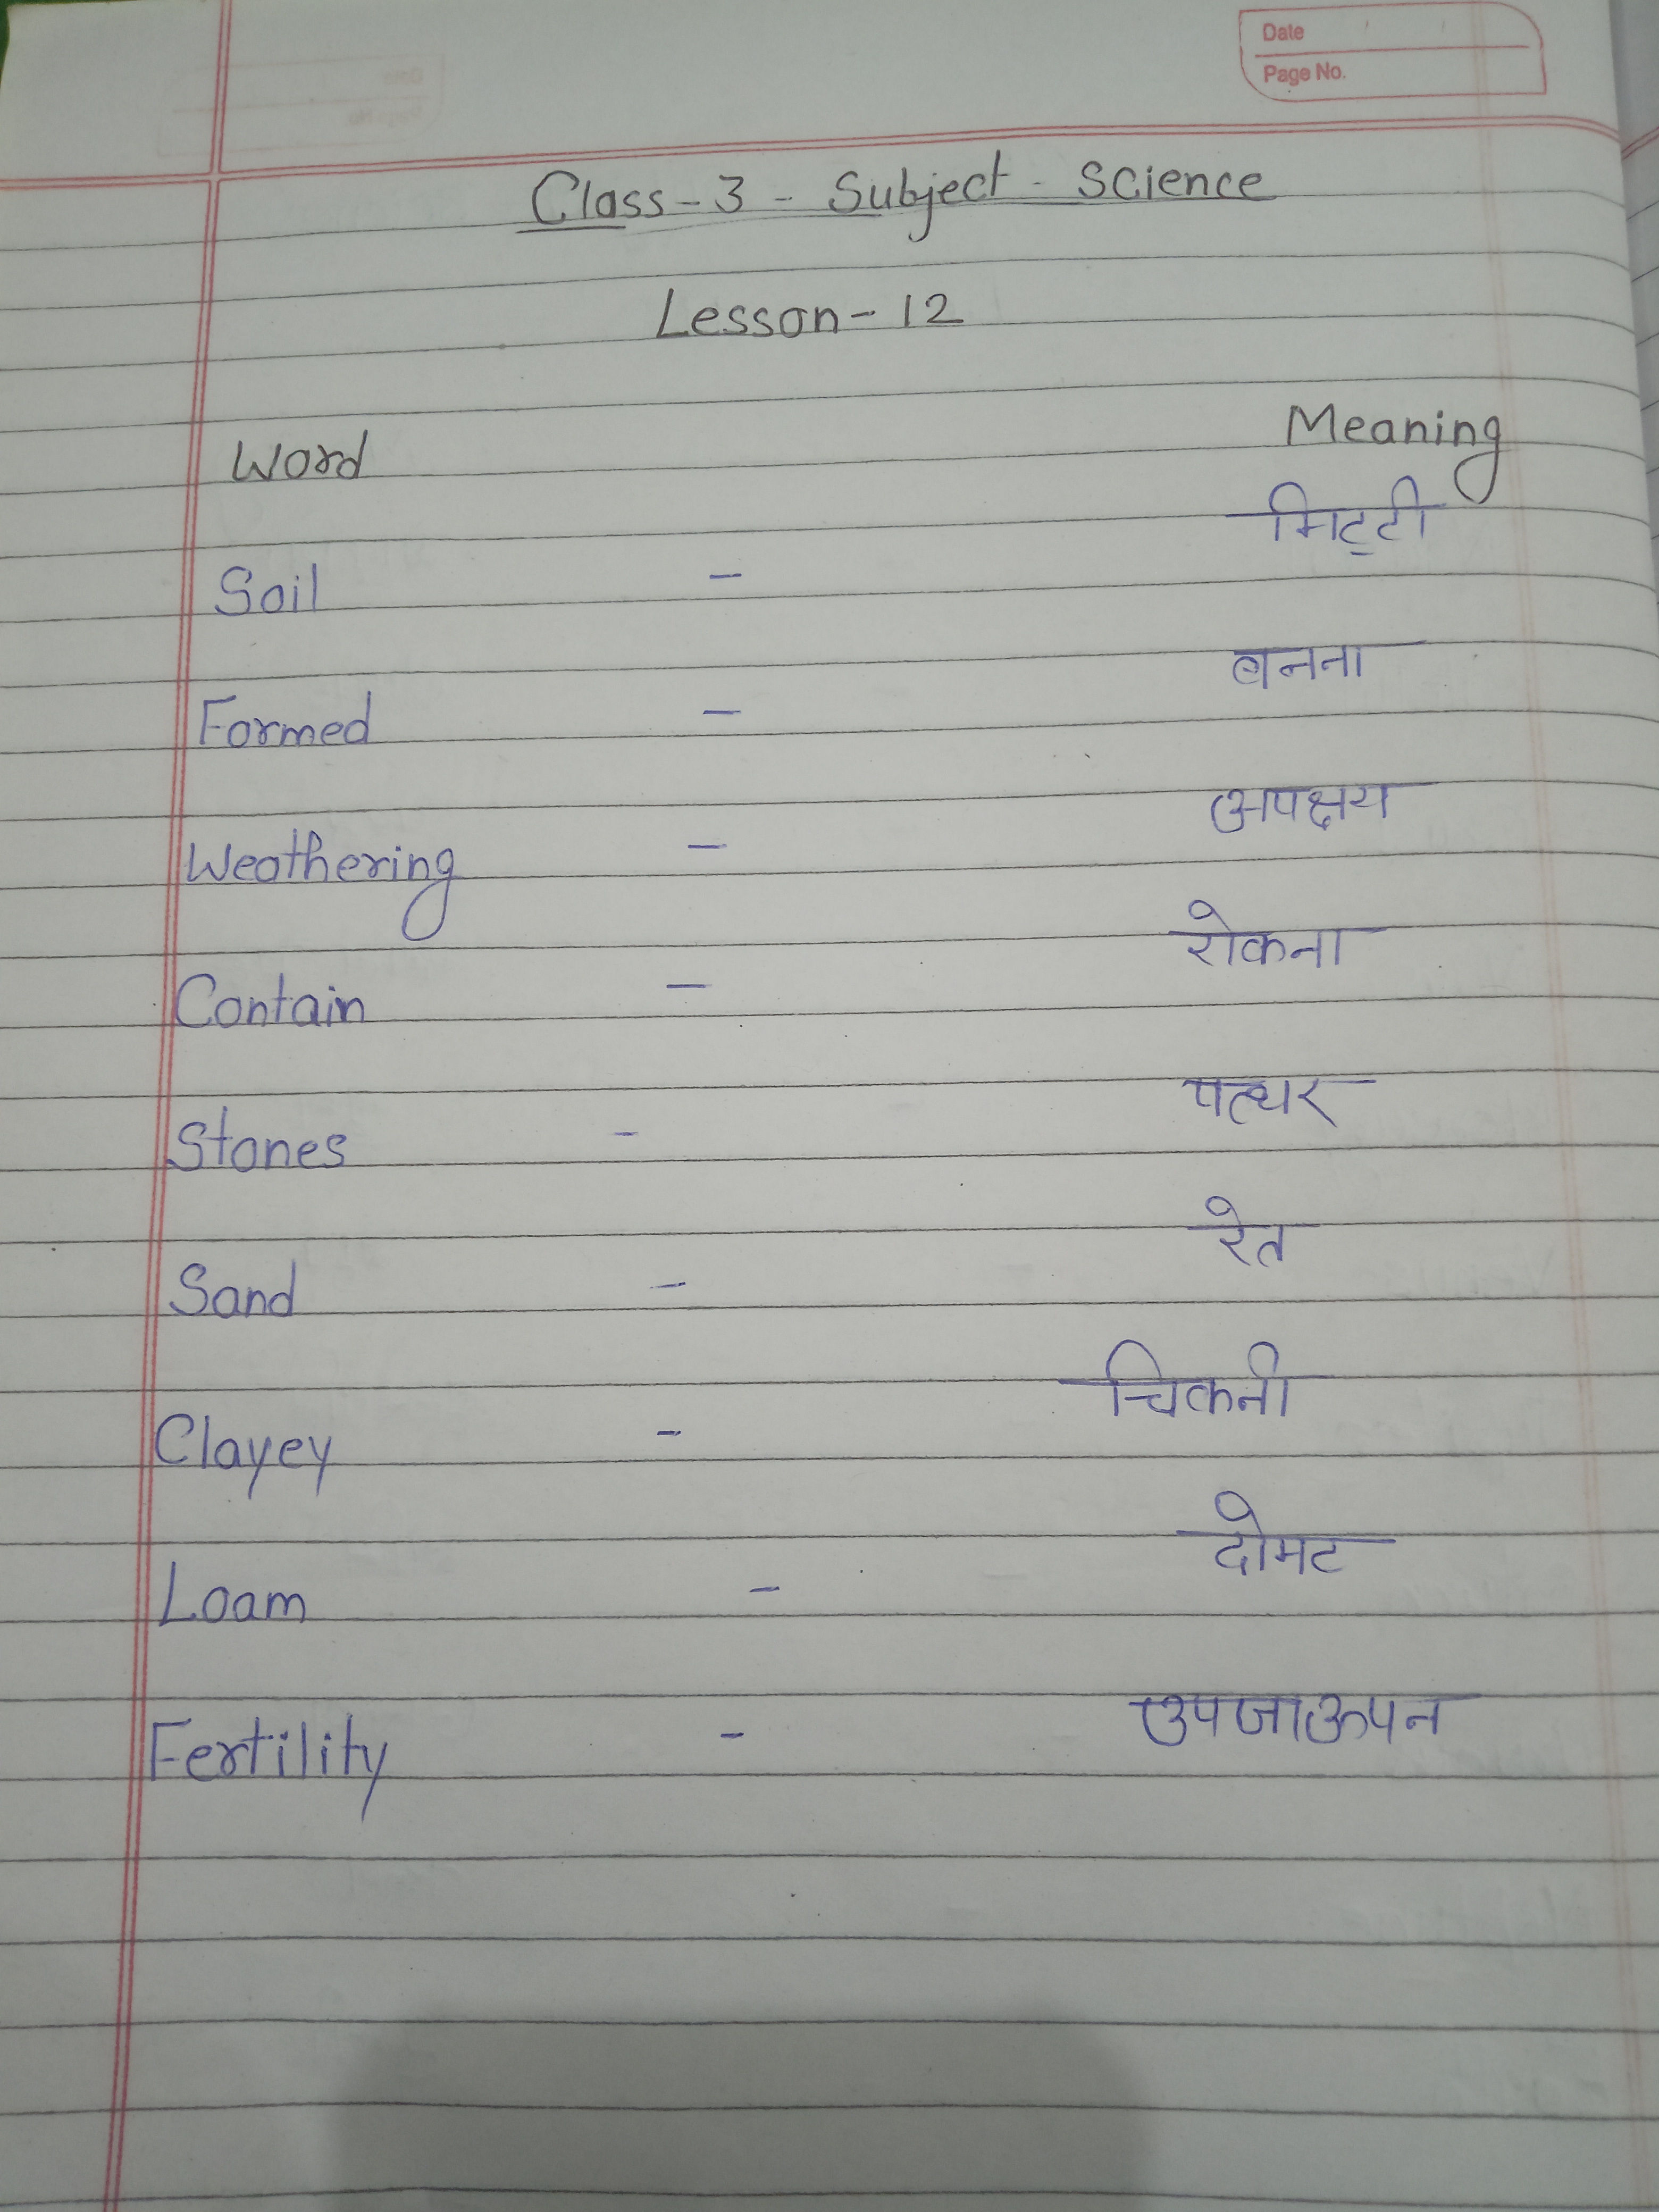 Date
Page No.
Class - 3 - Subject - Science
Lesson - 12
Word Meaning
Soil - मिट्टी
Formed - बनना
Weathering - अपक्षय
Contain - रोकना
Stones - पत्थर
Sand - रेत
Clayey - चिकनी
Loam - दोमट
Fertility - उपजाऊपन